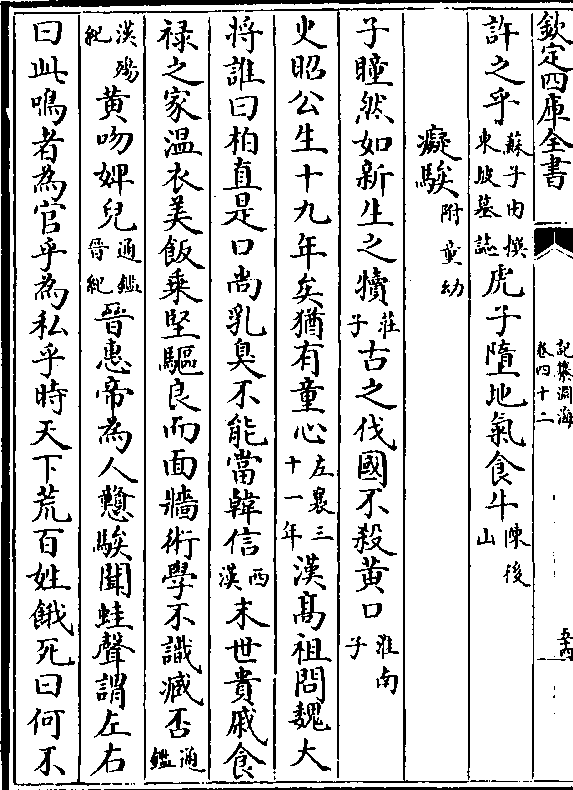 欽定四庫全書
記纂淵海
卷四十二
許之乎蘇子由撰東坡墓誌虎子墮地氣食牛陳後山
癡騃附童幼
子瞳然如新生之犢莊子古之伐國不殺黄口淮南子
史昭公生十九年矣猶有童心左襄三十一年漢髙祖問魏大
將誰曰柏直是口尚乳臭不能當韓信西漢末世貴戚食
禄之家温衣美飯乘堅驅良而面牆術學不識臧否通鑑
漢殤紀黄吻婢兒通鑑晉紀晉惠帝為人戇騃聞蛙聲謂左右
曰此鳴者為官乎為私乎時天下荒百姓餓死曰何不